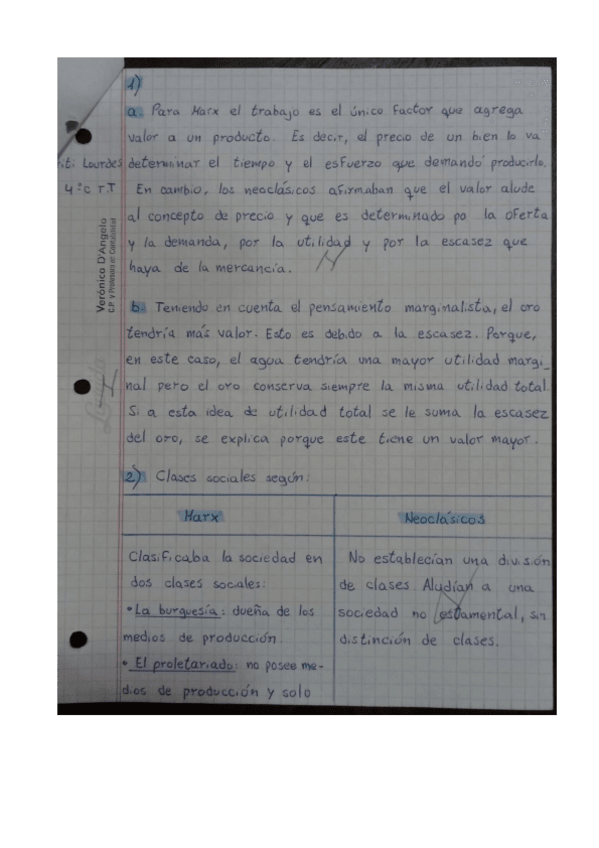 1)
a. Para Marx el trabajo es el único factor que agrega
valor a un producto. Es decir, el precio de un bien lo va
determinar el tiempo y el esfuerzo que demandó producirlo.
En cambio, los neoclásicos afirmaban que el valor alude
al concepto de precio y que es determinado po la oferta
y la demanda, por la utilidad y por la escasez que
haya de la mercancía.
Lourdes
4°C T.T
Verónica D'Angelo
C.P. y Profesora en Contabilidad
b. Teniendo en cuenta el pensamiento marginalista, el oro
tendría más valor. Esto es debido a la escasez. Porque,
en este caso, el agua tendría una mayor utilidad margi_
nal pero el oro conserva siempre la misma utilidad total.
Si a esta idea de utilidad total se le suma la escasez
del oro, se explica porque este tiene un valor mayor.
2) Clases sociales según:
Marx
Clasificaba la sociedad en
dos clases sociales:
• La burguesía: dueña de los
medios de producción.
• El proletariado: no posee me-
dios de producción y solo
Neoclásicos
No establecían una división
de clases. Aludían a una
sociedad no estamental, sin
distinción de clases.